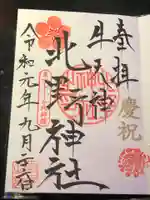 奉拝
慶祝
牛天神
北野神社
令和元年九月